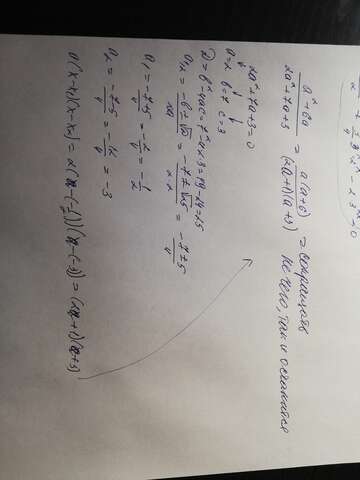 a² + 6a / 2a² + 7a + 3 = a(a+6) / (2a+1)(a+3) = сокращать
нечего, так и останется
2a² + 7a + 3 = 0
a = 2 b = 7 c = 3
D = b² - 4ac = 7² - 4·2·3 = 49 - 24 = 25
a₁,₂ = -b ± √D / 2a = -7 ± √25 / 2·2 = -7 ± 5 / 4
a₁ = -7+5 / 4 = -2 / 4 = -1/2
a₂ = -7-5 / 4 = -12 / 4 = -3
a(x-x₁)(x-x₂) = 2(a-(-1/2))(a-(-3)) = (2a+1)(a+3)